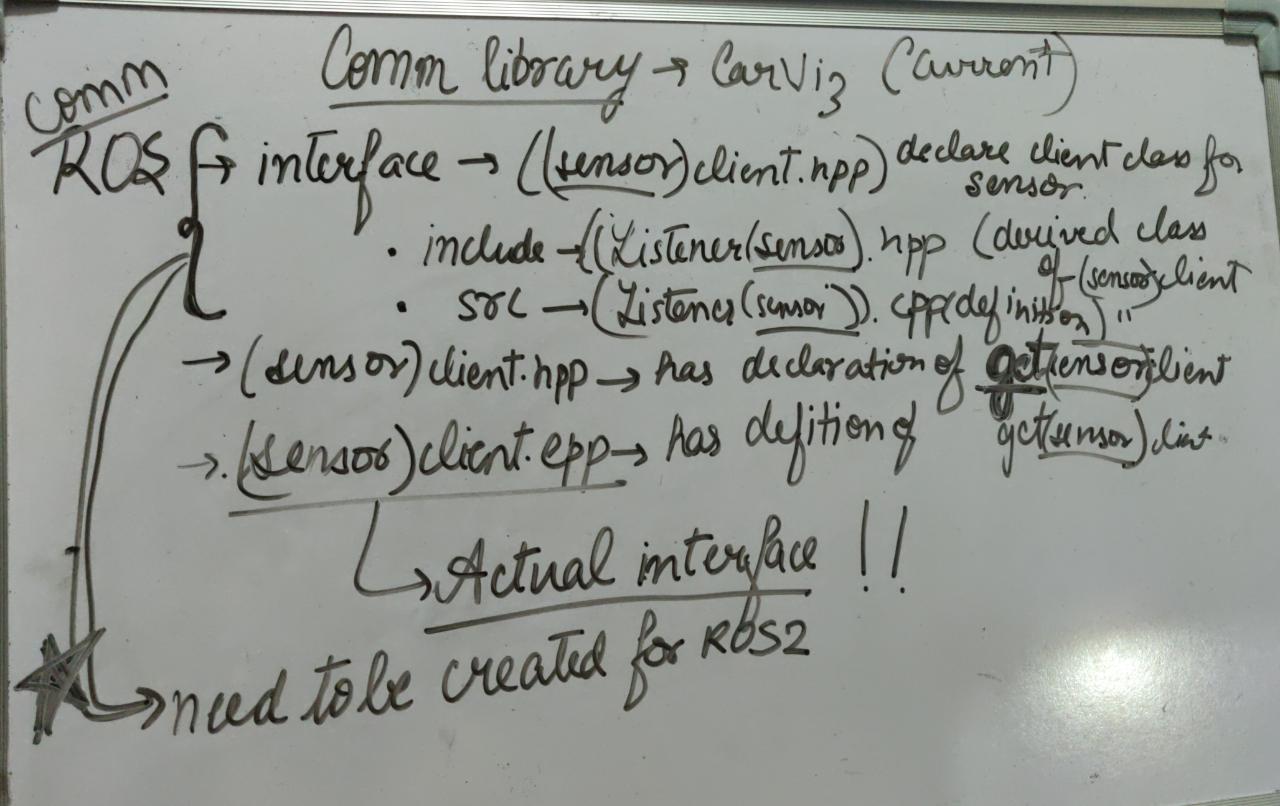 Comm library → CarVi3 (Current)
comm
ROS → interface → ((sensor)client.hpp) declare client class for sensor.
• include → ((Listener(sensor).hpp (derived class of (sensor)client
• src → (Listener(sensor)).cpp (definition) "
→ (sensor)client.hpp → has declaration of get(sensor)client
→. (sensor)client.cpp → has defition of get(sensor)clint.
→ Actual interface !!
→ need to be created for ROS2